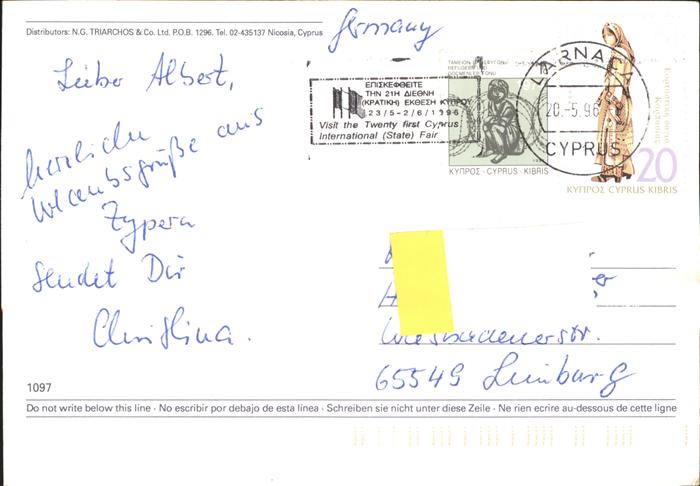 Distributors: N.G. TRIARCHOS & Co. Ltd. P.O.B. 1296. Tel. 02-435137 Nicosia, Cyprus
Germany
Lieber Albert,
herzliche
Urlaubsgrüße aus
Zypern
sendet Dir
Christina.
ΕΠΙΣΚΕΦΘΕΙΤΕ
ΤΗΝ 21Η ΔΙΕΘΝΗ
(ΚΡΑΤΙΚΗ) ΕΚΘΕΣΗ ΚΥΠΡΟΥ
23/5-2/6/1996
Visit the Twenty first Cyprus
International (State) Fair
ΚΥΠΡΟΣ - CYPRUS - KIBRIS
LARNACA
20.-5.96
CYPRUS
20
ΚΥΠΡΟΣ CYPRUS KIBRIS
er
Wiesbadenerstr.
65549 Limburg
1097
Do not write below this line - No escribir por debajo de esta línea - Schreiben sie nicht unter diese Zeile - Ne rien ecrire au-dessous de cette ligne